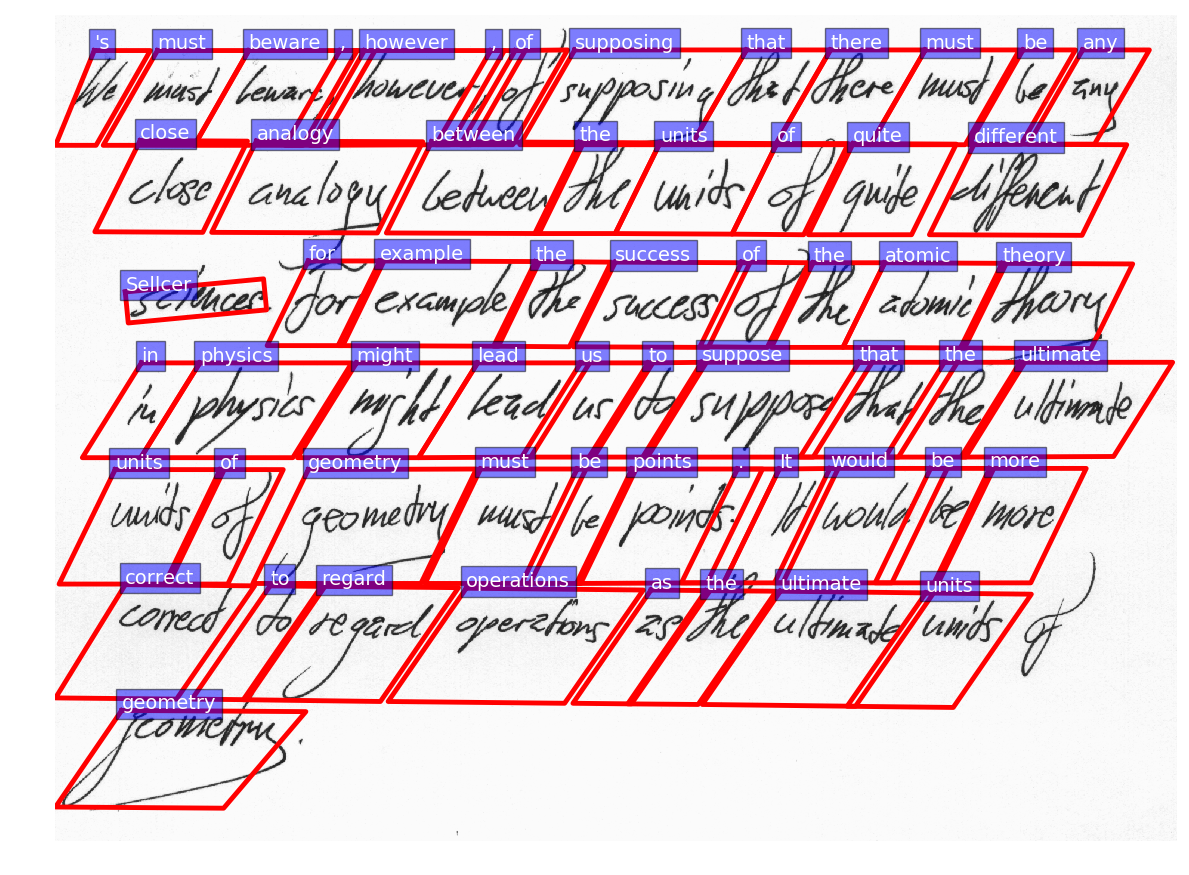 's must beware , however , of supposing that there must be any
We must beware, however, of supposing that there must be any
close analogy between the units of quite different
close analogy between the units of quite different
for example the success of the atomic theory
Sellcer
sciences for example the success of the atomic theory
in physics might lead us to suppose that the ultimate
in physics might lead us to suppose that the ultimate
units of geometry must be points . It would be more
units of geometry must be points. It would be more
correct to regard operations as the ultimate units
correct to regard operations as the ultimate units of
geometry
geometry.